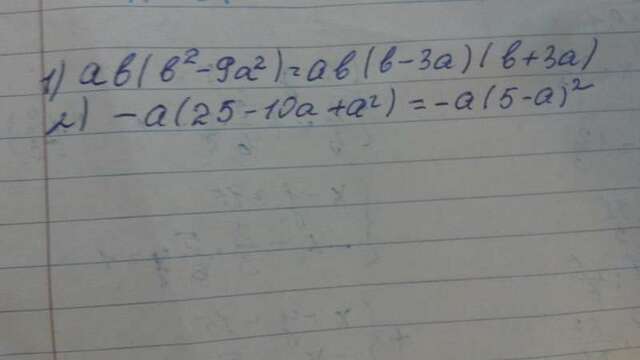 1) ab(b²-9a²)=ab(b-3a)(b+3a)
2) -a(25-10a+a²)=-a(5-a)²